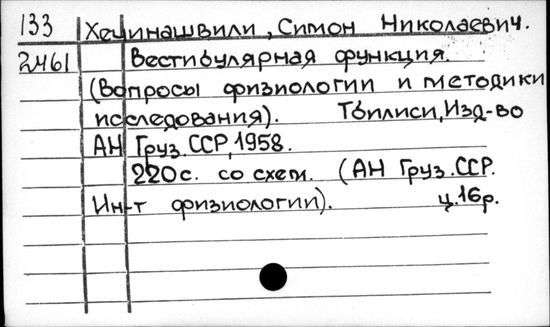 133 Хечинашвили, Симон Николаевич.
2461 Вестибулярная функция.
(Вопросы физиологии и методики
исследования). Тбилиси, Изд-во
АН Груз.ССР, 1958.
220с. со схем. (АН Груз.ССР.
Ин-т физиологии). ц.16р.